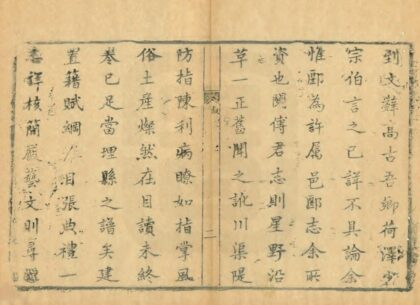 到文辭高古吾鄉荷澤
宗伯言之已詳不具論余
惟郾為許属邑郾志余所
資也閱傅君志則星野沿
革一正舊聞之訛川渠隄
二
防指陳利病瞭如指掌風
俗土產燦然在目讀未終
卷已足當理縣之譜矣建
置籍賦綱目張典禮一
悉詳核簡嚴藝文則尋